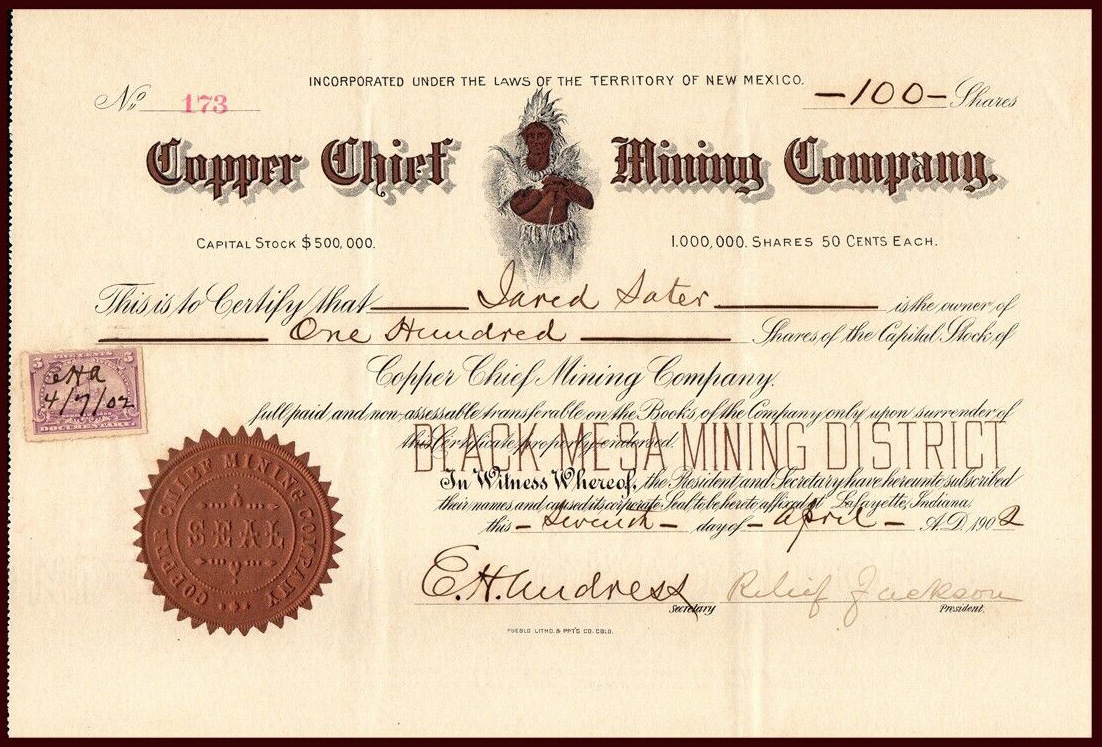 INCORPORATED UNDER THE LAWS OF THE TERRITORY OF NEW MEXICO.
No 173
-100- Shares
Copper Chief Mining Company.
CAPITAL STOCK $500,000.
1.000,000. SHARES 50 CENTS EACH.
This is to Certify that Jared Sater is the owner of
One Hundred Shares of the Capital Stock of
Copper Chief Mining Company.
full paid and non-assessable transferable on the Books of the Company only upon surrender of
this Certificate properly endorsed.
BLACK MESA MINING DISTRICT
In Witness Whereof, the President and Secretary have hereunto subscribed
their names and caused its corporate Seal to be hereto affixed at Lafayette, Indiana.
this - Seventh - day of - April - A.D. 1902
E.H. Andress Relief Jackson
Secretary President.
PUEBLO LITHO. & PPT'G CO. COLO.
5 FIVE CENTS 5
EHA
4/7/02
DOCUMENTARY
COPPER CHIEF MINING COMPANY
SEAL